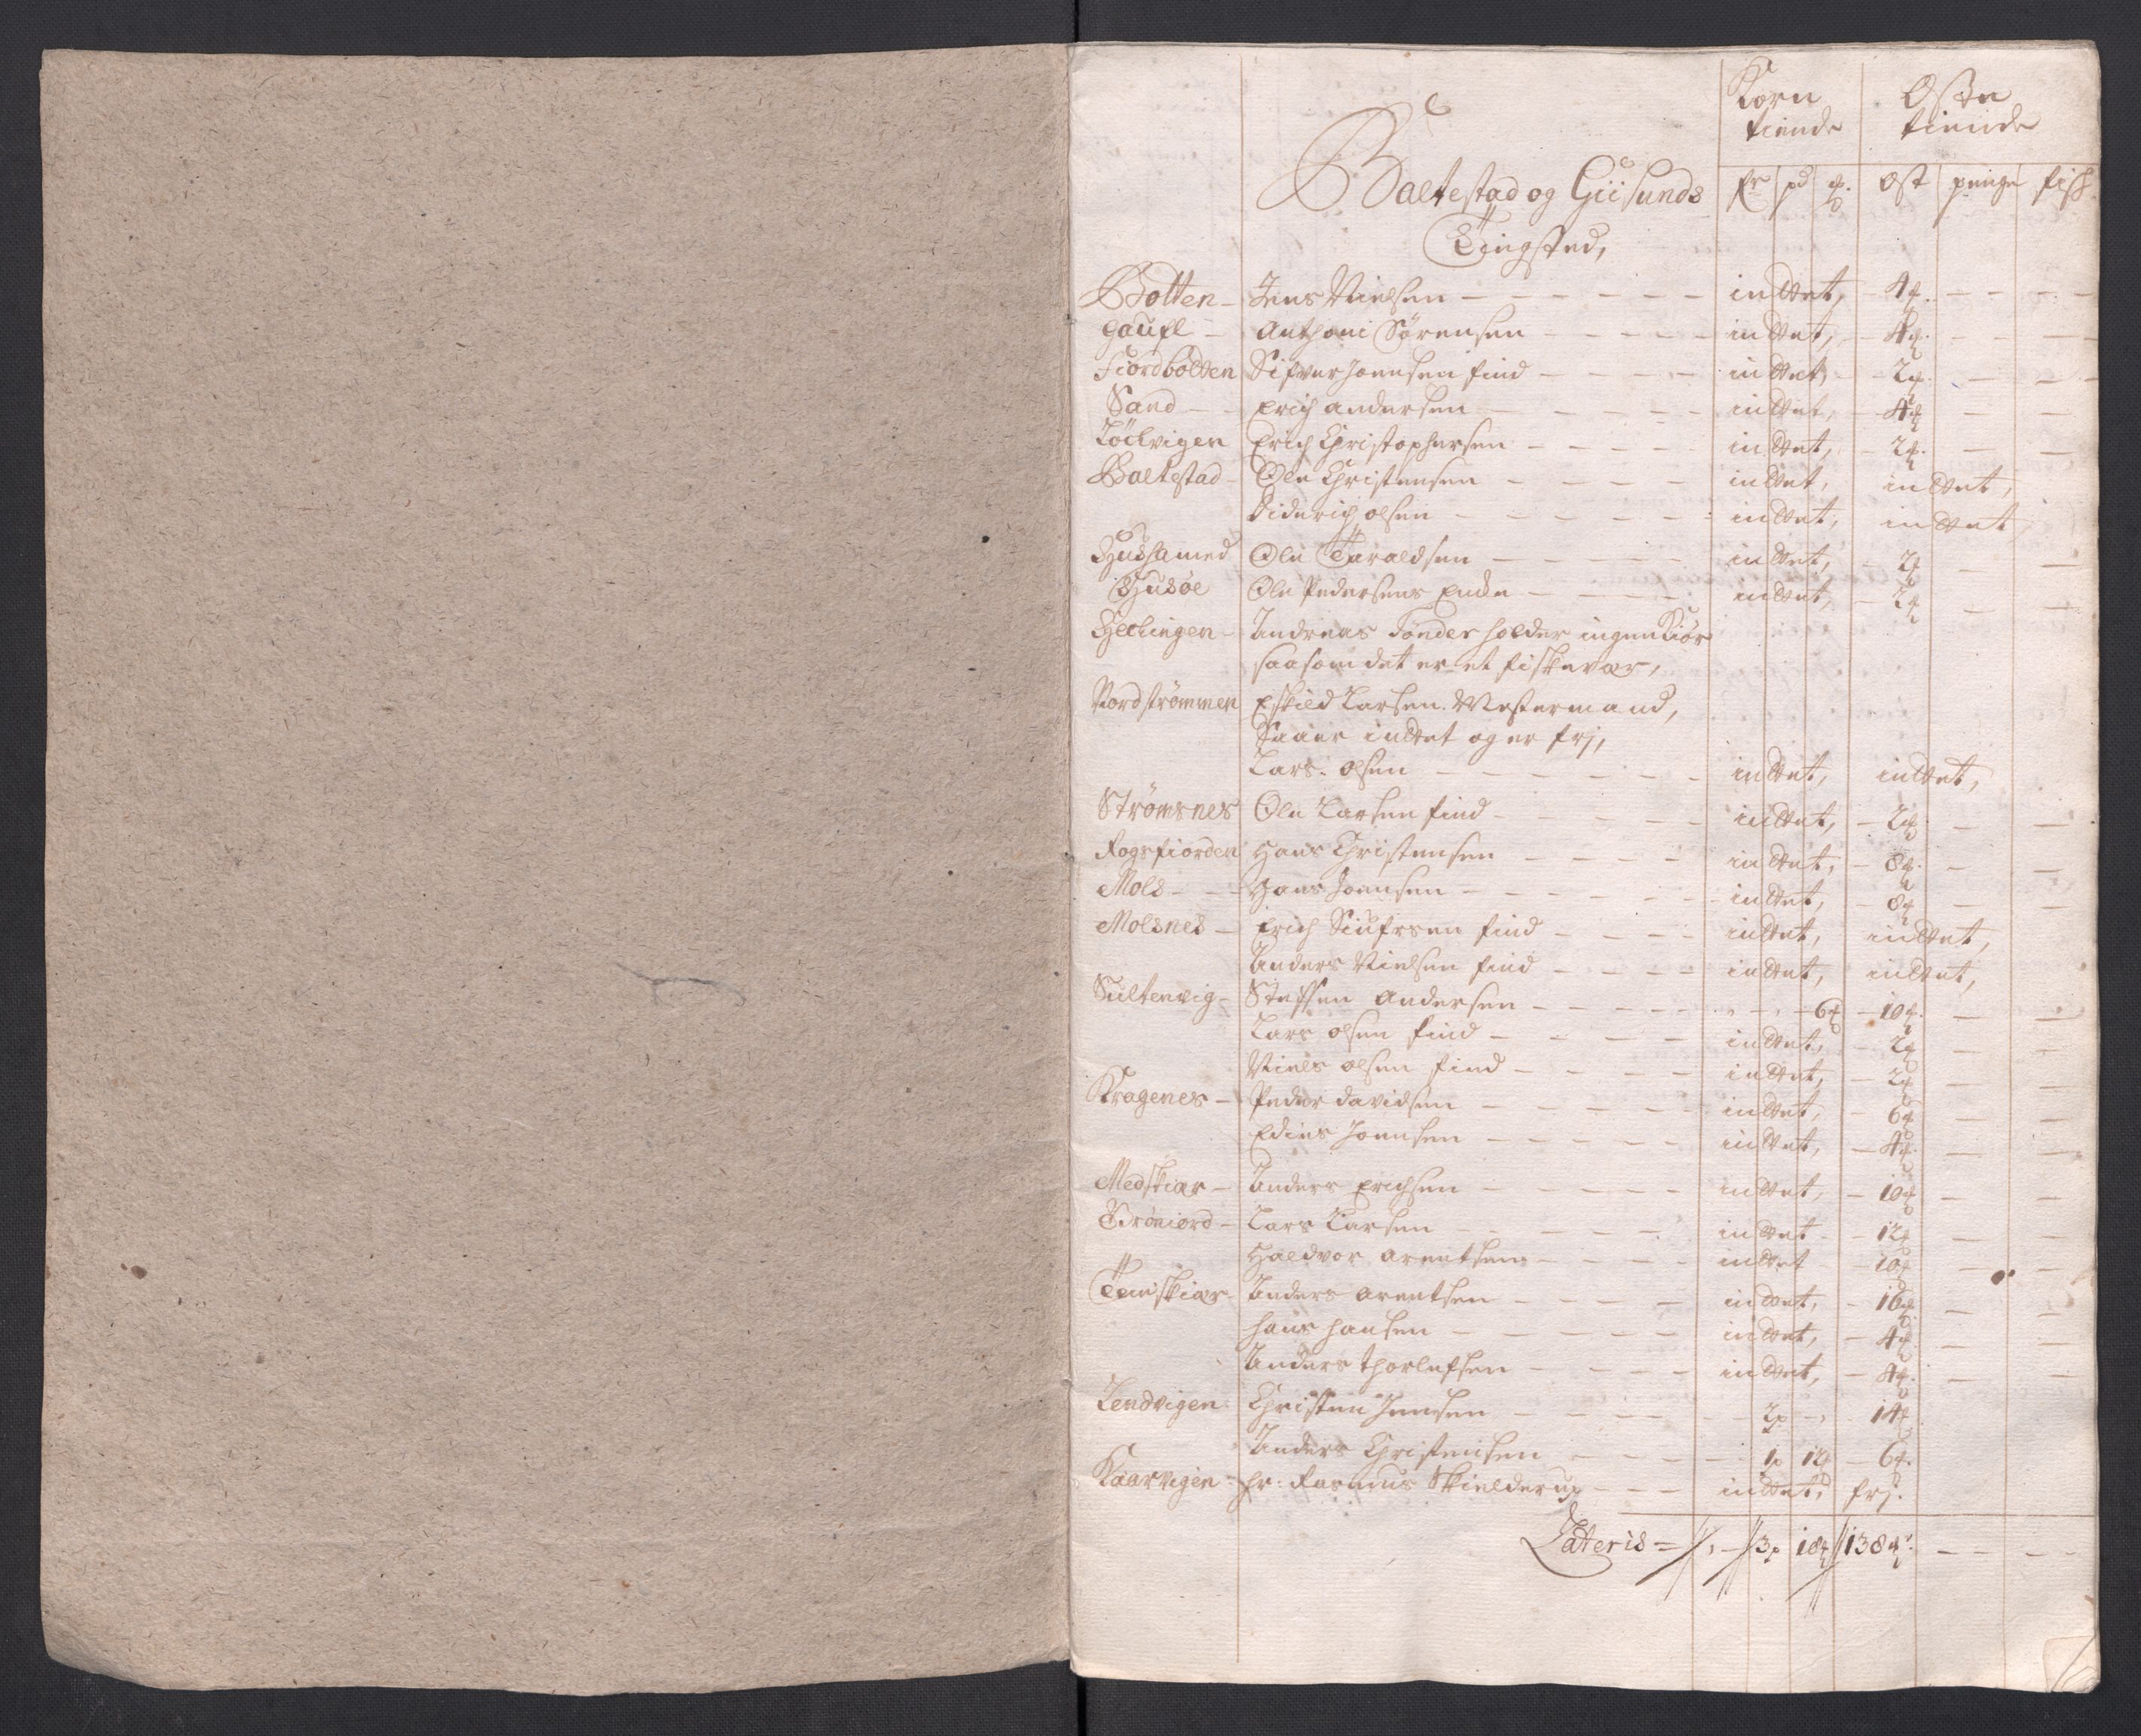 Korn Oste
tiende tiende
Baltestad og Giisunds
Tingsted,
Ost penge fisk
Botten - Jens Nielsen - indtet, - 4 - -
Gaufl - Anthoni Sørensen - indtet, - 4 - -
Fiordbotten Sifver Joensen find - indtet, - 2 - -
Sand - Erich Andersen - indtet, - 4 - -
Løckvigen Erich Christophersen - indtet, - 2 - -
Baltestad - Ole Christensen - indtet, indtet,
Diderich Olsen - indtet, indtet
Ole Taraldsen - indtet, - 2 - -
Husøe Ole Pedersens Encke - indtet, - 2 - -
Heckingen - Andreas Tønder holder ingen Kiør
saasom det er et fiskevær,
Nordstrømmen Eskild Larsen Westermand,
Saaer indtet og er frj,
Lars Olsen - indtet, indtet,
Strømsnes Ole Larsen find - indtet, - 2 - -
Rogsfiorden Hans Christensen - indtet, - 8 - -
Mols - Hans Joensen - indtet, - 8 - -
Molsnes - Erich Siufrsen find - indtet, indtet,
Anders Nielsen find - indtet, indtet,
Sultenvig - Steffen Andersen - 6 - 10 - -
Lars Olsen find - indtet, - 2 - -
Niels Olsen find - indtet, - 2 - -
Kragenes - Peder Davidsen - indtet, - 6 - -
Edies Joensen - indtet, - 4 - -
Medskiær - Anders Erichsen - indtet, - 10 - -
Lars Larsen - indtet - 12 - -
Haldvor Arentsen - indtet - 10 - -
Temskiær - Anders Arentsen - indtet, - 16 - -
Hans Hansen - indtet, - 4 - -
Anders Thorlefsen - indtet, - 4 - -
Lendvigen Christen Jensen - 2 - 14
Anders Christensen - 1 12 - 6
Kaarvigen - hr: Rasmus Skielderup - indtet, frj.
Lateris = 3 18 138 - -